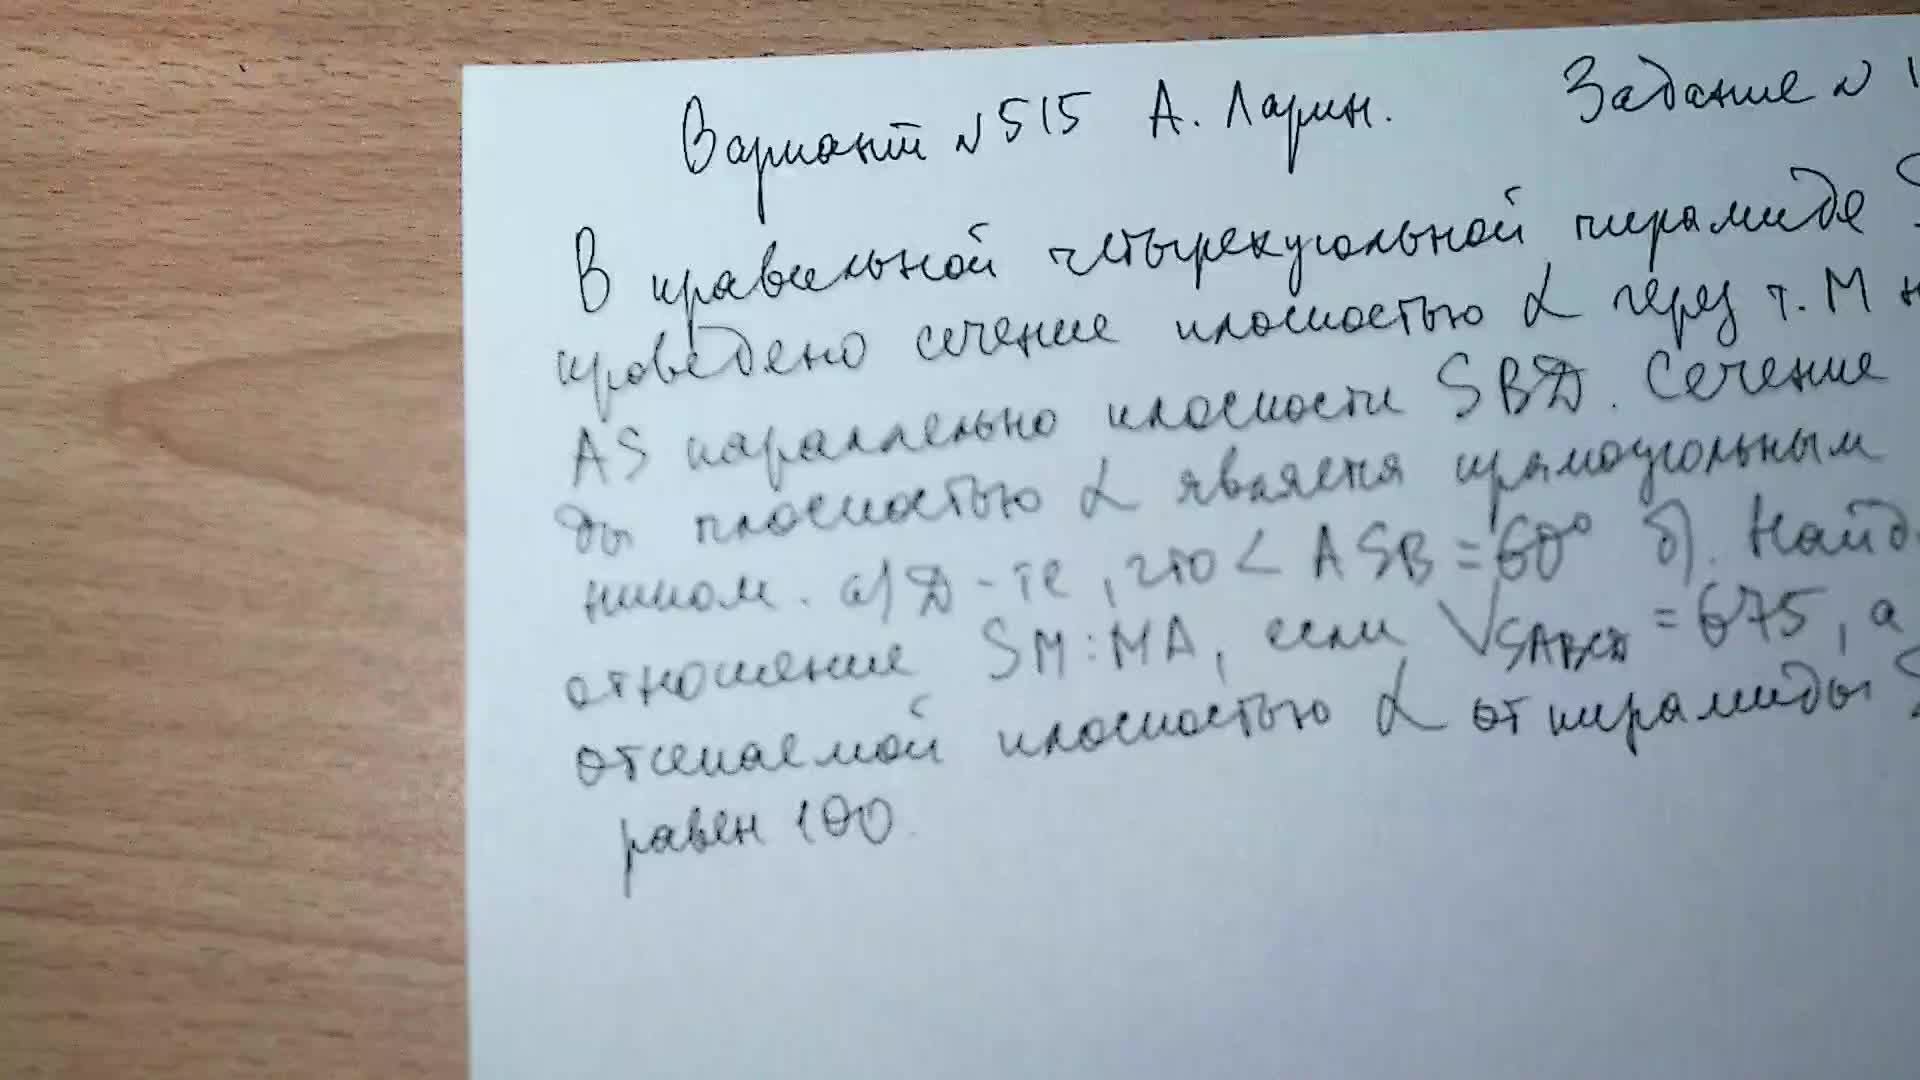 Вариант N 515 А. Ларин. Задание N 1
В правильной четырехугольной пирамиде S
проведено сечение плоскостью α через т. М н
AS параллельно плоскости SBD. Сечение
ды плоскостью α является прямоугольным
ником. а) Д-те, что < ASB = 60° б). Найд
отношение SM:MA, если VSABCD = 675, а
отсекаемой плоскостью α от пирамиды S
равен 100.